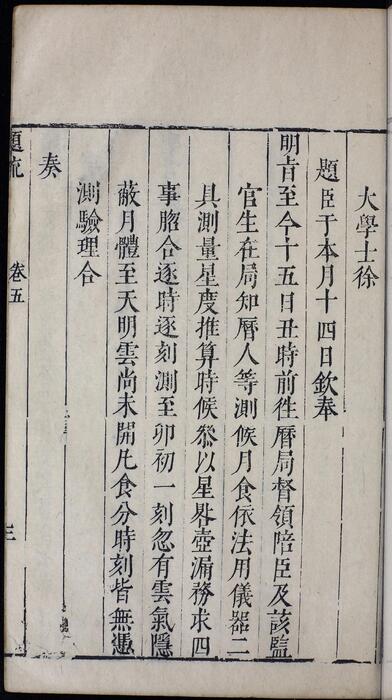 大學士徐
題臣于本月十四日欽奉
明旨至今十五日丑時前徃曆局督領陪臣及該監
官生在局知曆人等測候月食依法用儀器二
具測量星度推算時候叅以星晷壺漏務求四
事脗合逐時逐刻測至卯初一刻忽有雲氣隱
蔽月體至天明雲尚未開凡食分時刻皆無憑
測驗理合
奏
題疏 卷五 三